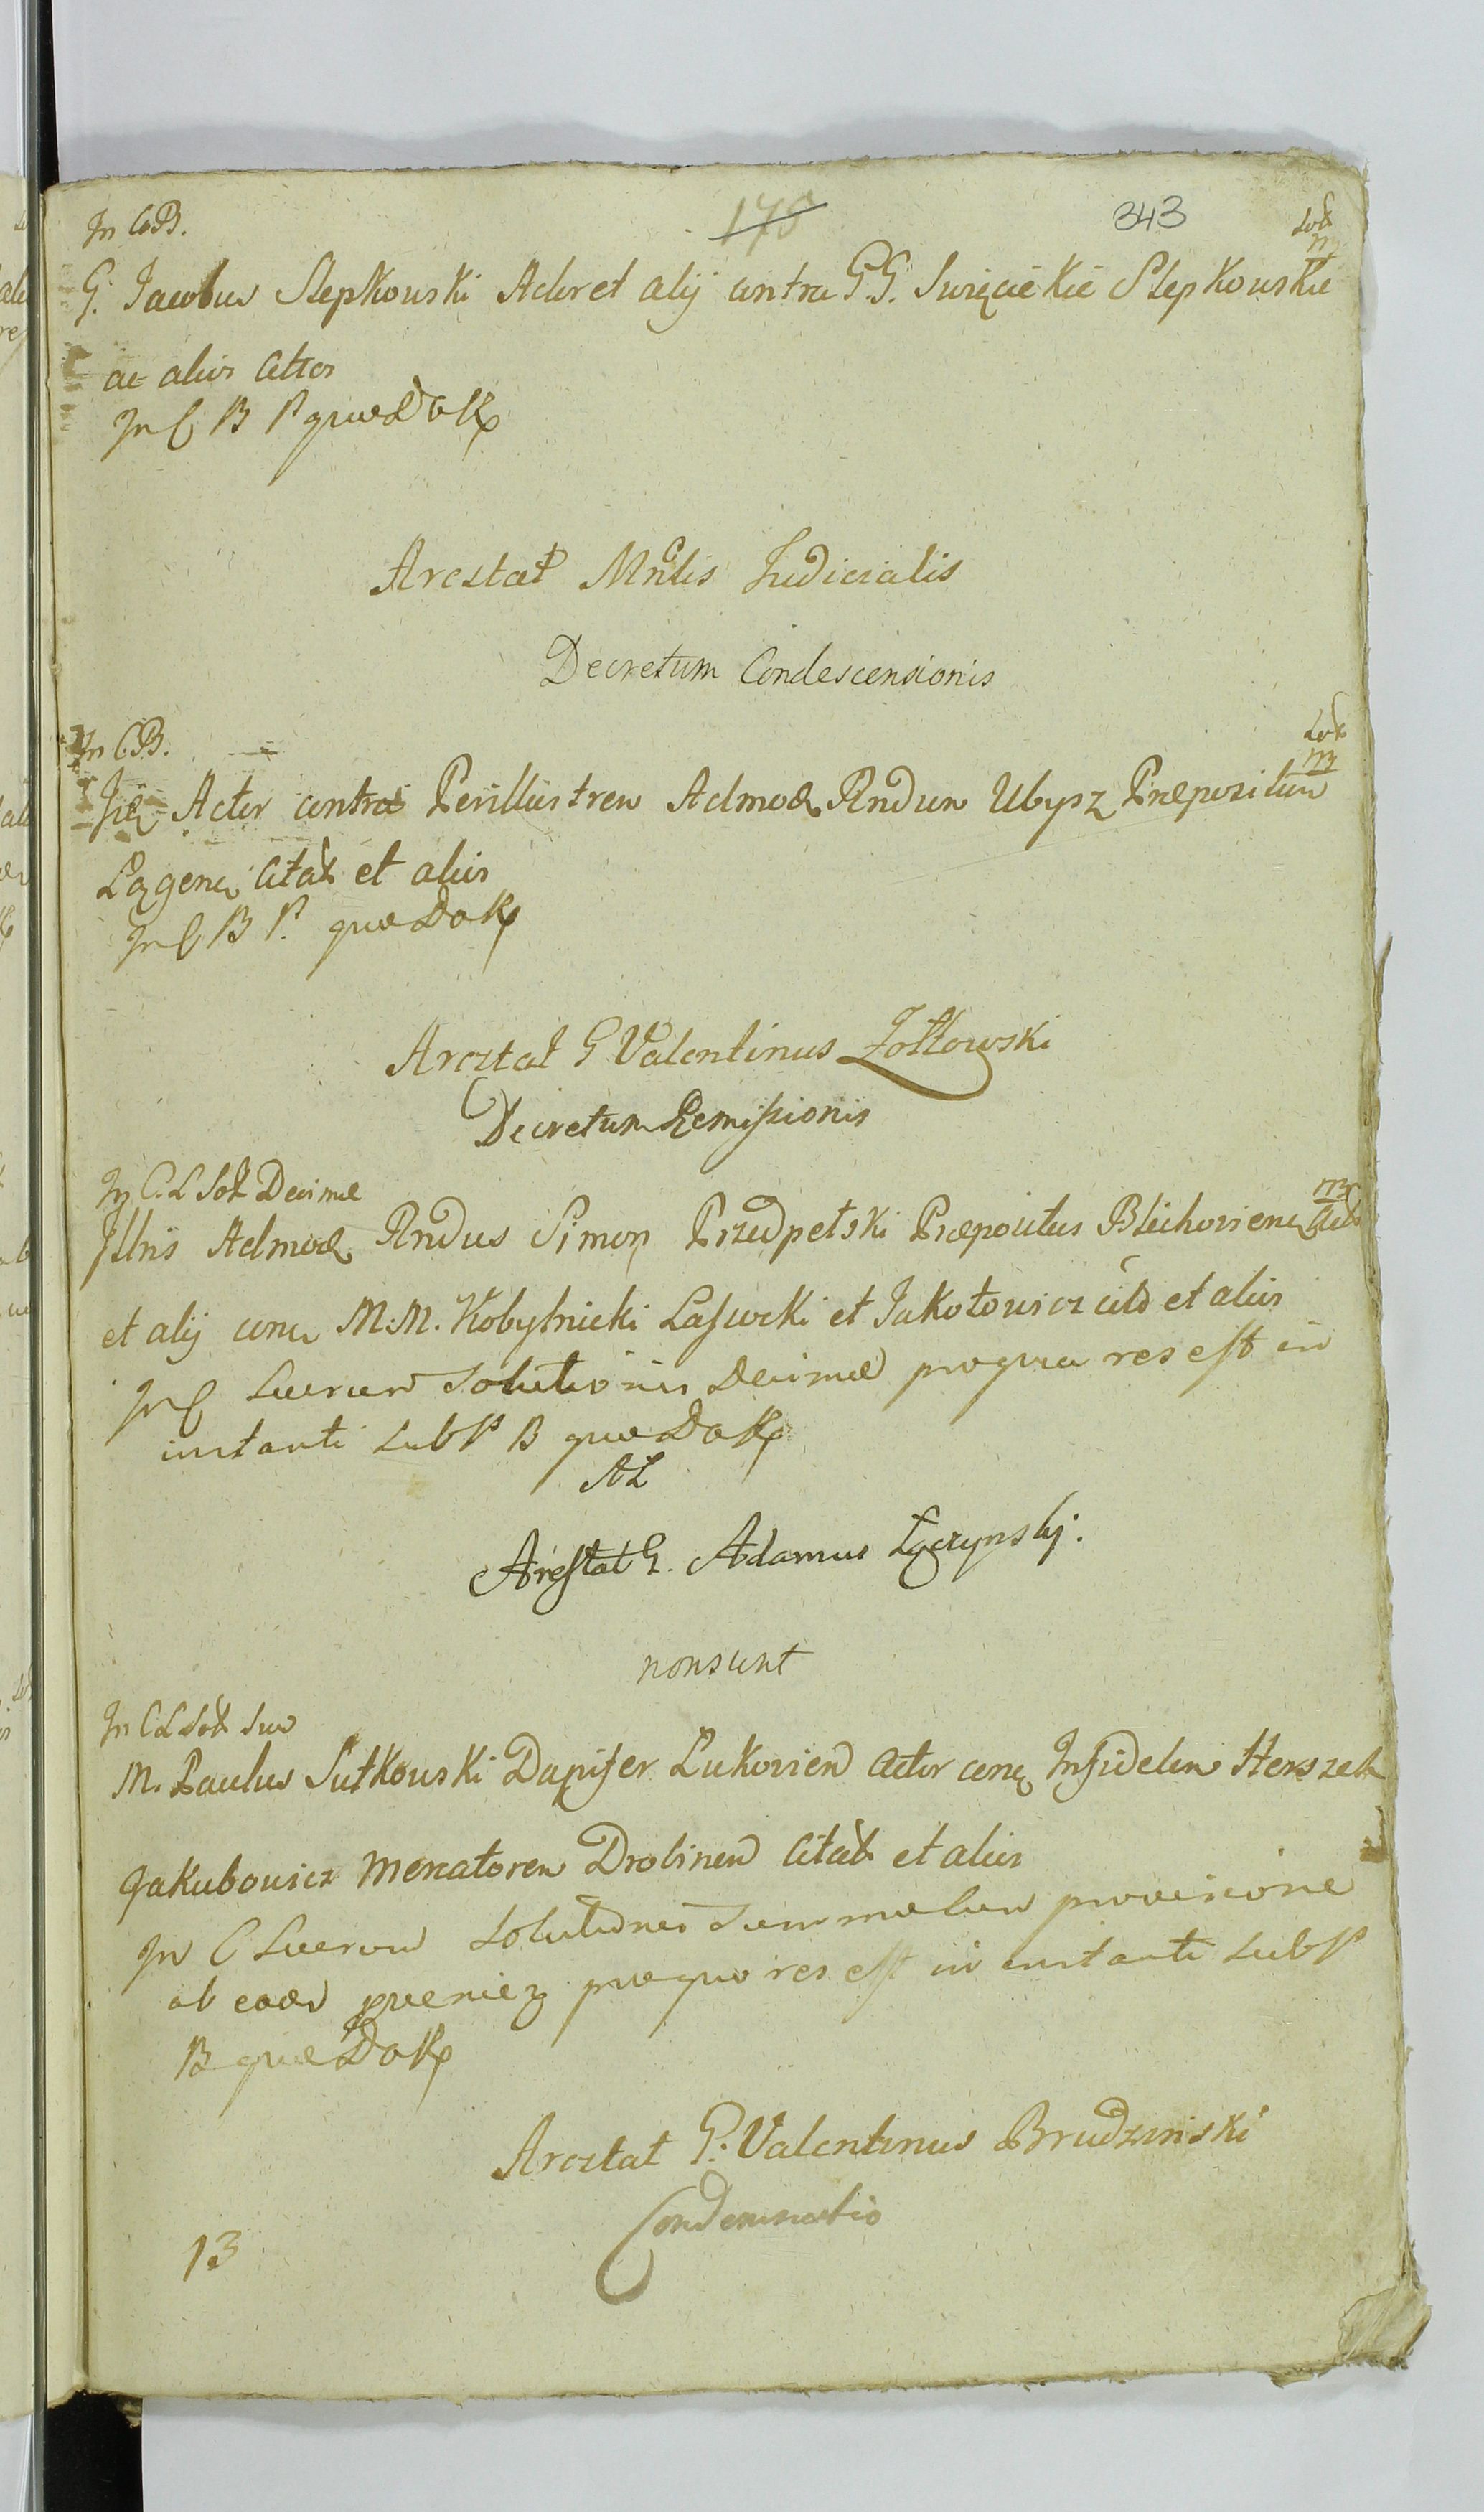 178 343
In C B. Sok
G. Jacobus Slepkouski Actor et alij contra G.G. Swięcickie Slepkouskie
ac alios Cittos
In C B P quae Dok
Arestat Mnlis Judicialis
Decretum Condescensionis
In C.B. Sok
Actor contra Perillustren Admod Rndun Ubysz Praepositum
Łęgens Citat et alios
In C B P. quae Dok
Arestat G Valentinus Żółtowski
Decretum Remissionis
In C. L Sok Decimae
Illris Admod Rndus Simon Przedpełski Praepositus Blichoviens Act
et alij conn M.M. Kobylnicki Lasucki et Jakotowicz cito et alios
In C Lucrum Solutionis Decimae pro qua res est in
instanti sub P B quae Dok
AL
Arestat G. Adamus Łączynskj.
non sunt
In C L Sok Sum
M. Paulus Sutkouski Dapifer Lukovien Actor conn Infidelem Herszek
Jakubowicz Mercatorem Drobinen Citat et alios
In C Lucrum Solutionis Summae cum provisione
ab eaed proeniez pro quo res est in instanti sub P
B quae Dok
Arestat G. Valentinus Brudzinski
Condemnatio
13